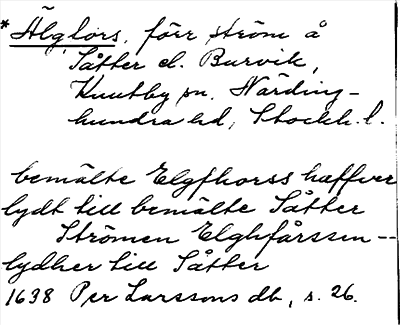 *Älgfors, förr ström å
Såtter el. Burvik,
Knutby sn. Närding-
hundra hd, Stockh. l.
bemälte Elgfhorss haffver
lydt till bemälte Såtter
Strömen Elghfårssen --
lydher till Såtter
1638 Per Larssons db, s. 26.